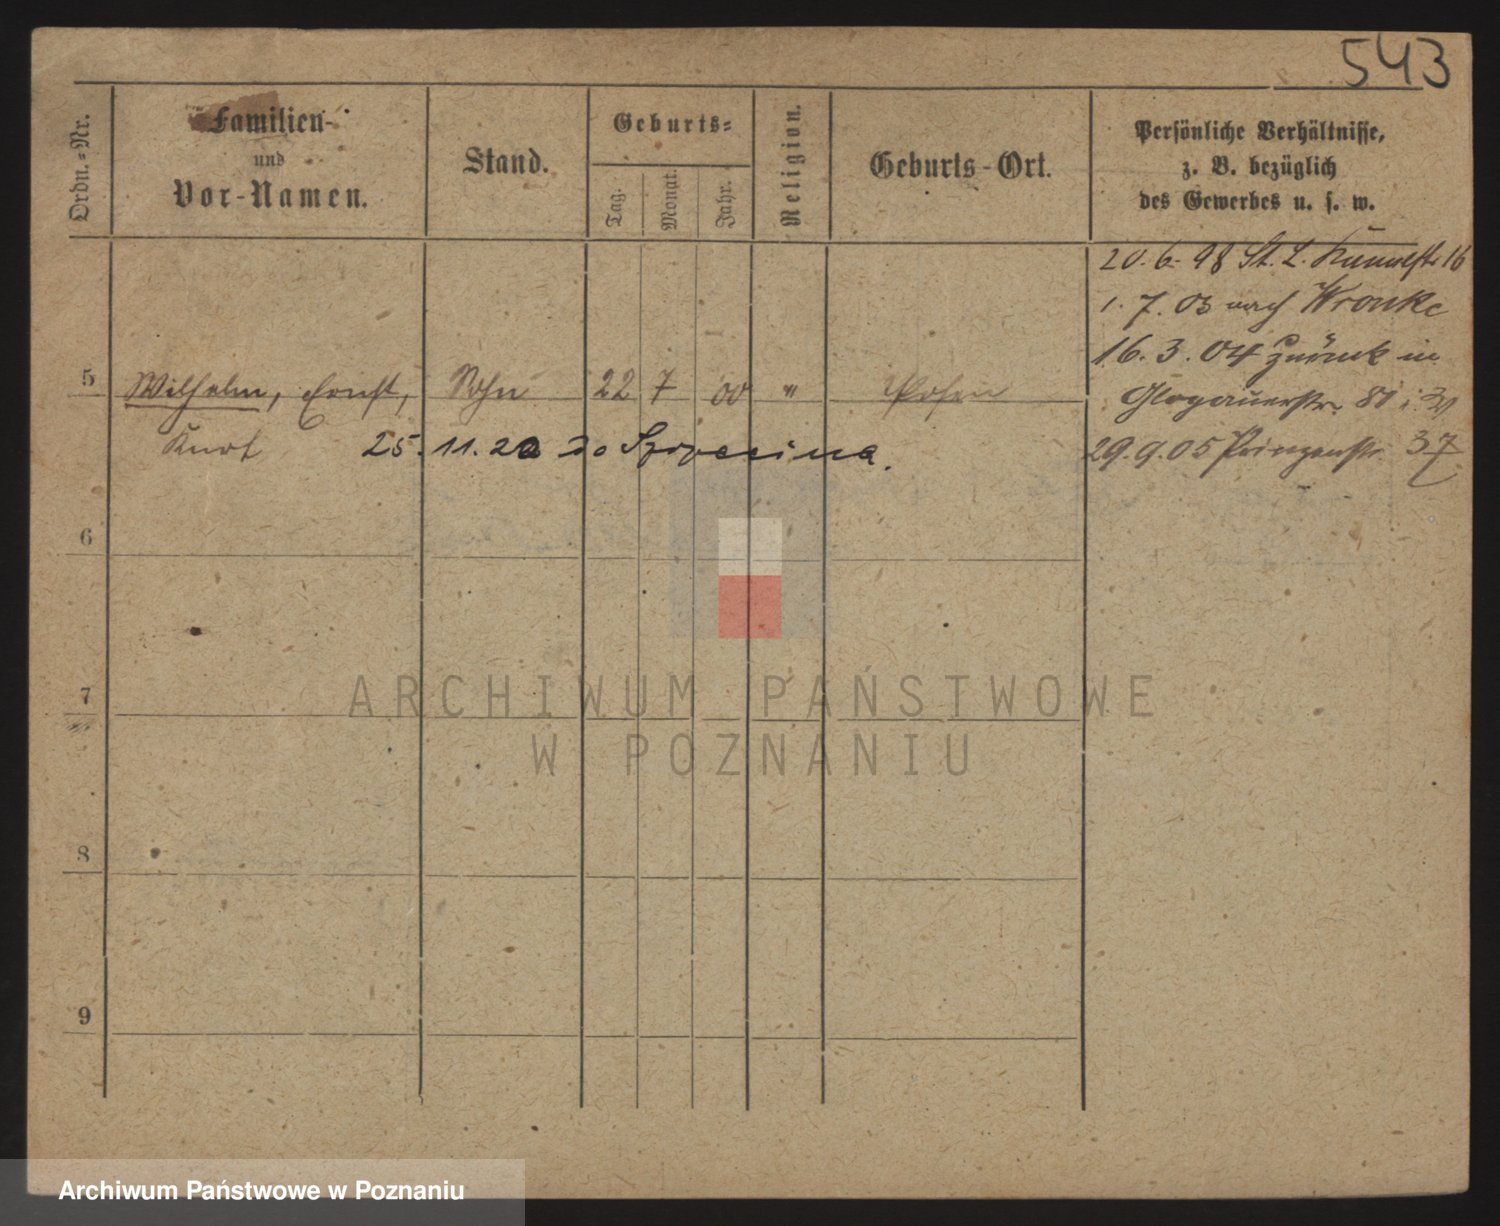 543
Ordn.=Nr.
Familien-
und
Vor-Namen.
Stand.
Geburts=
Tag.
Monat.
Jahr.
Religion.
Geburts-Ort.
Persönliche Verhältnisse,
z. B. bezüglich
des Gewerbes u. s. w.
20.6.98 St. L. 16
1.7.03 nach Wronke
16.3.04 zurück in
5 Wilhelm, Ernst, Sohn 22 7 00 " Posen
Glogauerstr. 81
Knot 25.11.20 do
29.9.05 Prinzenstr. 37
6
7
8
9
ARCHIWUM PAŃSTWOWE
W POZNANIU
Archiwum Państwowe w Poznaniu